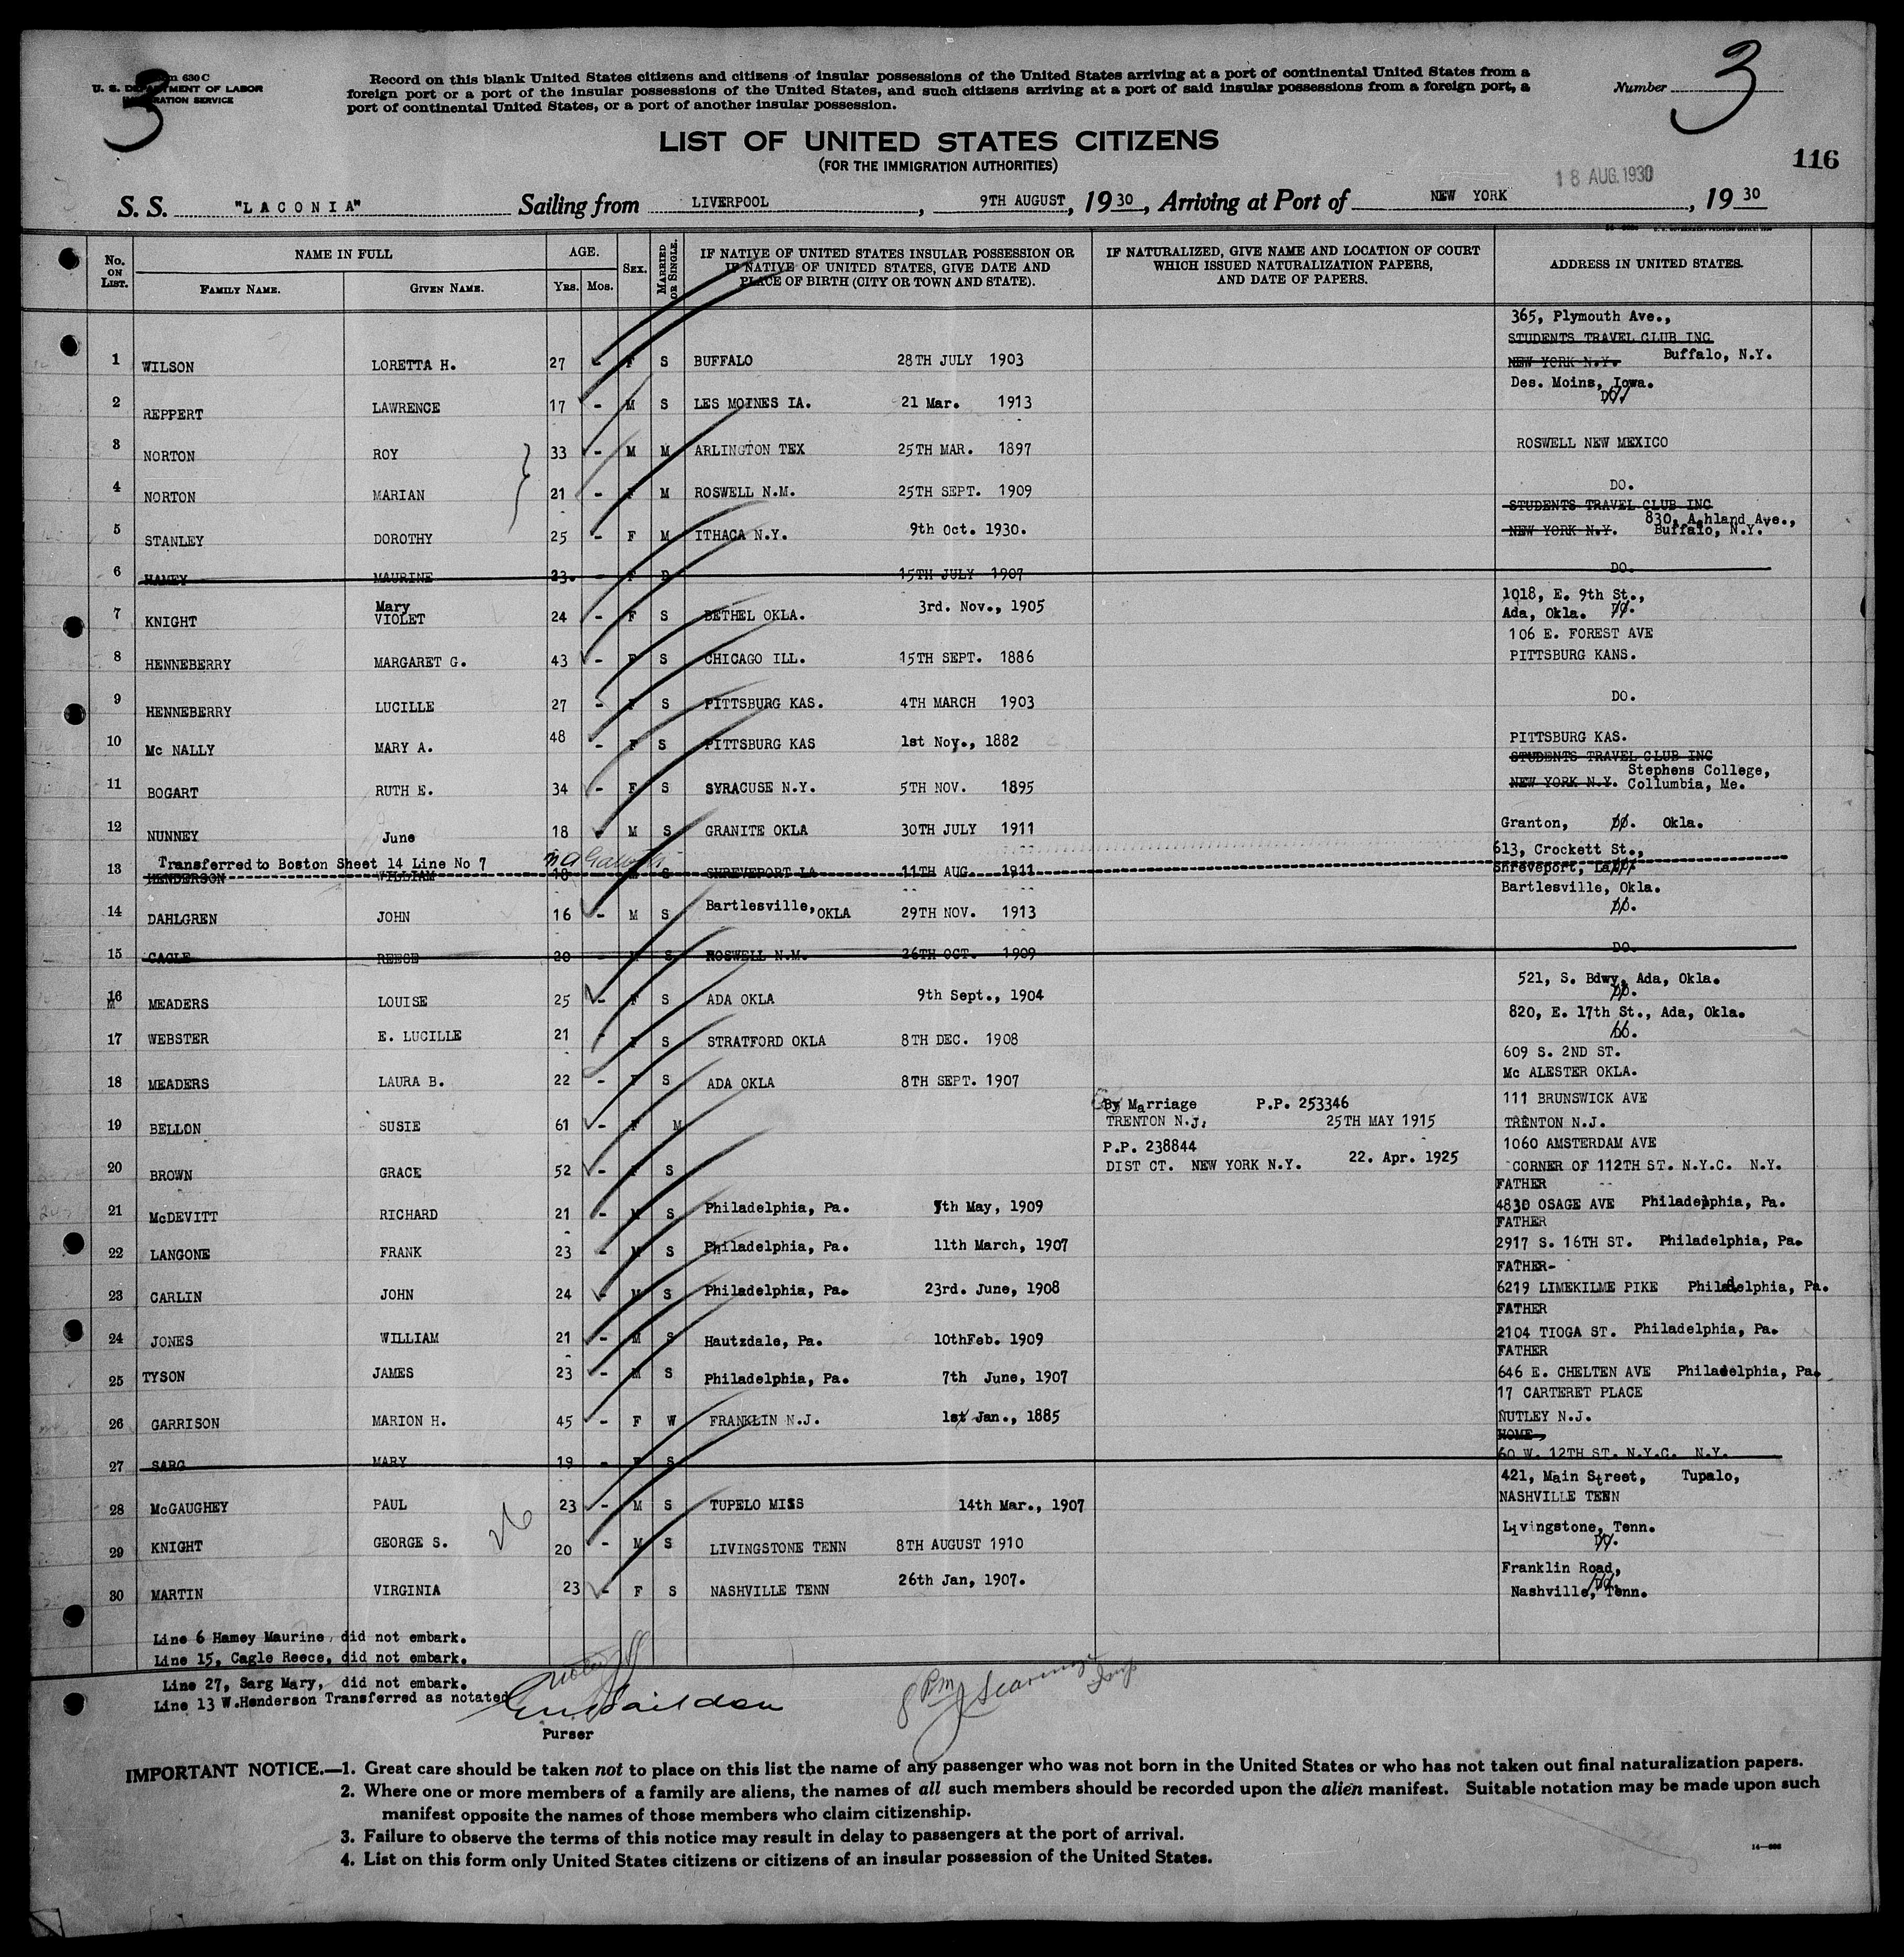 Form 630 C
U. S. DEPARTMENT OF LABOR
IMMIGRATION SERVICE
3
Record on this blank United States citizens and citizens of insular possessions of the United States arriving at a port of continental United States from a
foreign port or a port of the insular possessions of the United States, and such citizens arriving at a port of said insular possessions from a foreign port, a
port of continental United States, or a port of another insular possession.
Number 3
LIST OF UNITED STATES CITIZENS
(FOR THE IMMIGRATION AUTHORITIES)
116
18 AUG. 1930
S. S. "LACONIA" Sailing from LIVERPOOL, 9TH AUGUST, 1930, Arriving at Port of NEW YORK, 1930
No. ON LIST. NAME IN FULL FAMILY NAME. GIVEN NAME. AGE. YRS. MOS. SEX. MARRIED OR SINGLE. IF NATIVE OF UNITED STATES INSULAR POSSESSION OR IF NATIVE OF UNITED STATES, GIVE DATE AND PLACE OF BIRTH (CITY OR TOWN AND STATE). IF NATURALIZED, GIVE NAME AND LOCATION OF COURT WHICH ISSUED NATURALIZATION PAPERS, AND DATE OF PAPERS. ADDRESS IN UNITED STATES.
365, Plymouth Ave.,
STUDENTS TRAVEL CLUB INC
1 WILSON LORETTA H. 27 - F S BUFFALO 28TH JULY 1903 NEW YORK N.Y. Buffalo, N.Y.
Des. Moins, Iowa.
2 REPPERT LAWRENCE 17 - M S LES MOINES IA. 21 Mar. 1913 DO.
3 NORTON ROY 33 - M M ARLINGTON TEX 25TH MAR. 1897 ROSWELL NEW MEXICO
4 NORTON MARIAN 21 - F M ROSWELL N.M. 25TH SEPT. 1909 DO.
STUDENTS TRAVEL CLUB INC
830, Ashland Ave.,
5 STANLEY DOROTHY 25 - F M ITHACA N.Y. 9th Oct. 1930. NEW YORK N.Y. Buffalo, N.Y.
6 HAMEY MAURINE 23. - F 15TH JULY 1907 DO.
Mary 1018, E. 9th St.,
7 KNIGHT VIOLET 24 - F S BETHEL OKLA. 3rd. Nov., 1905 Ada, Okla. DO.
106 E. FOREST AVE
8 HENNEBERRY MARGARET G. 43 - F S CHICAGO ILL. 15TH SEPT. 1886 PITTSBURG KANS.
9 HENNEBERRY LUCILLE 27 - F S PITTSBURG KAS. 4TH MARCH 1903 DO.
10 Mc NALLY MARY A. 48 - F S PITTSBURG KAS 1st Nov., 1882 PITTSBURG KAS.
STUDENTS TRAVEL CLUB INC
Stephens College,
11 BOGART RUTH E. 34 - F S SYRACUSE N.Y. 5TH NOV. 1895 NEW YORK N.Y. Collumbia, Me.
12 NUNNEY June 18 - M S GRANITE OKLA 30TH JULY 1911 Granton, DO. Okla.
Transferred to Boston Sheet 14 Line No 7 613, Crockett St.,
13 HENDERSON WILLIAM 18 - M S SHREVEPORT LA 11TH AUG. 1911 Shreveport, La. DO.
Bartlesville, Okla.
14 DAHLGREN JOHN 16 - M S Bartlesville, OKLA 29TH NOV. 1913 DO.
15 CAGLE REECE 20 - M S ROSWELL N.M. 26TH OCT. 1909 DO.
521, S. Bdwy, Ada, Okla.
16 MEADERS LOUISE 25 - F S ADA OKLA 9th Sept., 1904 DO.
820, E. 17th St., Ada, Okla.
17 WEBSTER E. LUCILLE 21 - F S STRATFORD OKLA 8TH DEC. 1908 DO.
609 S. 2ND ST.
18 MEADERS LAURA B. 22 - F S ADA OKLA 8TH SEPT. 1907 Mc ALESTER OKLA.
By Marriage P.P. 253346 111 BRUNSWICK AVE
19 BELLON SUSIE 61 - F M TRENTON N.J. 25TH MAY 1915 TRENTON N.J.
P.P. 238844 1060 AMSTERDAM AVE
20 BROWN GRACE 52 - F S DIST CT. NEW YORK N.Y. 22. Apr. 1925 CORNER OF 112TH ST. N.Y.C. N.Y.
FATHER
21 McDEVITT RICHARD 21 - M S Philadelphia, Pa. 7th May, 1909 4830 OSAGE AVE Philadelphia, Pa.
FATHER
22 LANGONE FRANK 23 - M S Philadelphia, Pa. 11th March, 1907 2917 S. 16TH ST. Philadelphia, Pa.
FATHER-
23 CARLIN JOHN 24 - M S Philadelphia, Pa. 23rd. June, 1908 6219 LIMEKILME PIKE Philadelphia, Pa.
FATHER
24 JONES WILLIAM 21 - M S Hautzdale, Pa. 10thFeb. 1909 2104 TIOGA ST. Philadelphia, Pa.
FATHER
25 TYSON JAMES 23 - M S Philadelphia, Pa. 7th June, 1907 646 E. CHELTEN AVE Philadelphia, Pa.
17 CARTERET PLACE
26 GARRISON MARION H. 45 - F W FRANKLIN N.J. 1st Jan., 1885 NUTLEY N.J.
HOME,
27 SARG MARY 19 - F S 60 W. 12TH ST. N.Y.C. N.Y.
421, Main Street, Tupalo,
28 McGAUGHEY PAUL 23 - M S TUPELO MISS 14th Mar., 1907 NASHVILLE TENN
Livingstone, Tenn.
29 KNIGHT GEORGE S. 20 - M S LIVINGSTONE TENN 8TH AUGUST 1910 DO.
Franklin Road,
30 MARTIN VIRGINIA 23 - F S NASHVILLE TENN 26th Jan, 1907. Nashville, Tenn.
Line 6 Hamey Maurine, did not embark.
Line 15, Cagle Reece, did not embark.
Line 27, Sarg Mary, did not embark.
Line 13 W.Henderson Transferred as notated
Purser
IMPORTANT NOTICE.—1. Great care should be taken not to place on this list the name of any passenger who was not born in the United States or who has not taken out final naturalization papers.
2. Where one or more members of a family are aliens, the names of all such members should be recorded upon the alien manifest. Suitable notation may be made upon such
manifest opposite the names of those members who claim citizenship.
3. Failure to observe the terms of this notice may result in delay to passengers at the port of arrival.
4. List on this form only United States citizens or citizens of an insular possession of the United States.